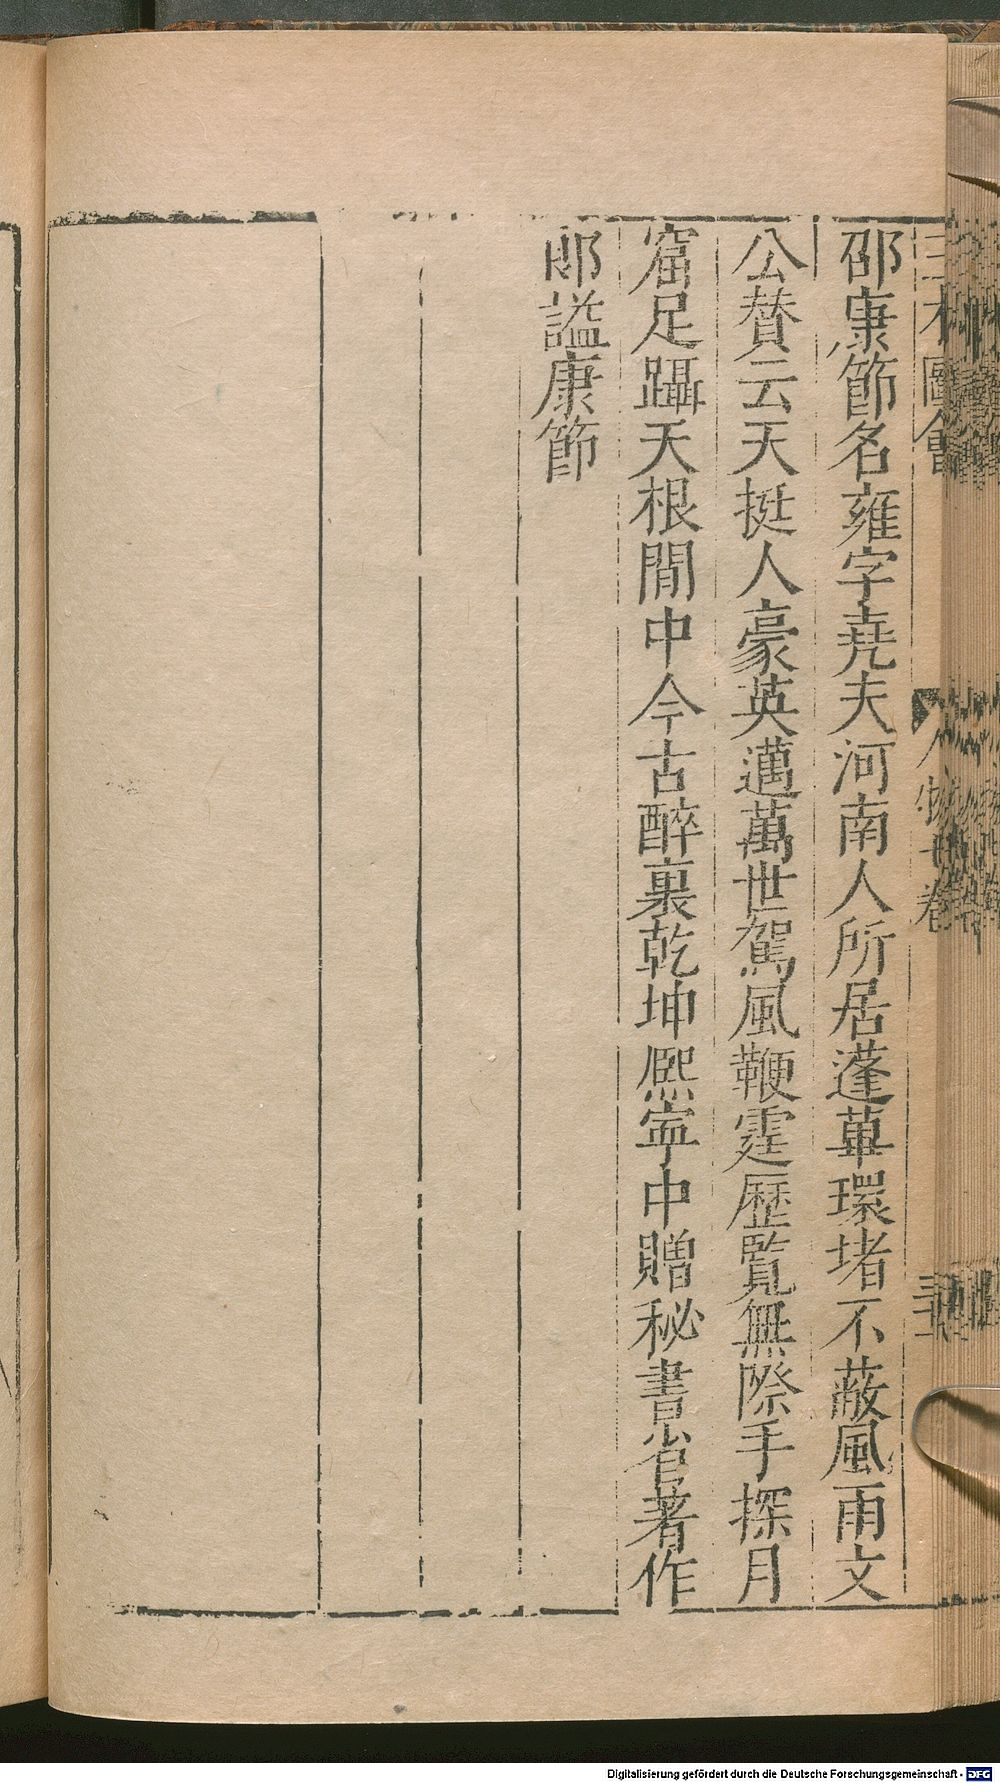 三才圖會
人物七卷
邵康節名雍字堯夫河南人所居蓬蓽環堵不蔽風雨文
公賛云天挺人豪英邁萬世駕風鞭霆歷覽無際手探月
窟足躡天根閒中今古醉裏乾坤熈寧中贈秘書省著作
郎謚康節
Digitalisierung gefördert durch die Deutsche Forschungsgemeinschaft - DFG